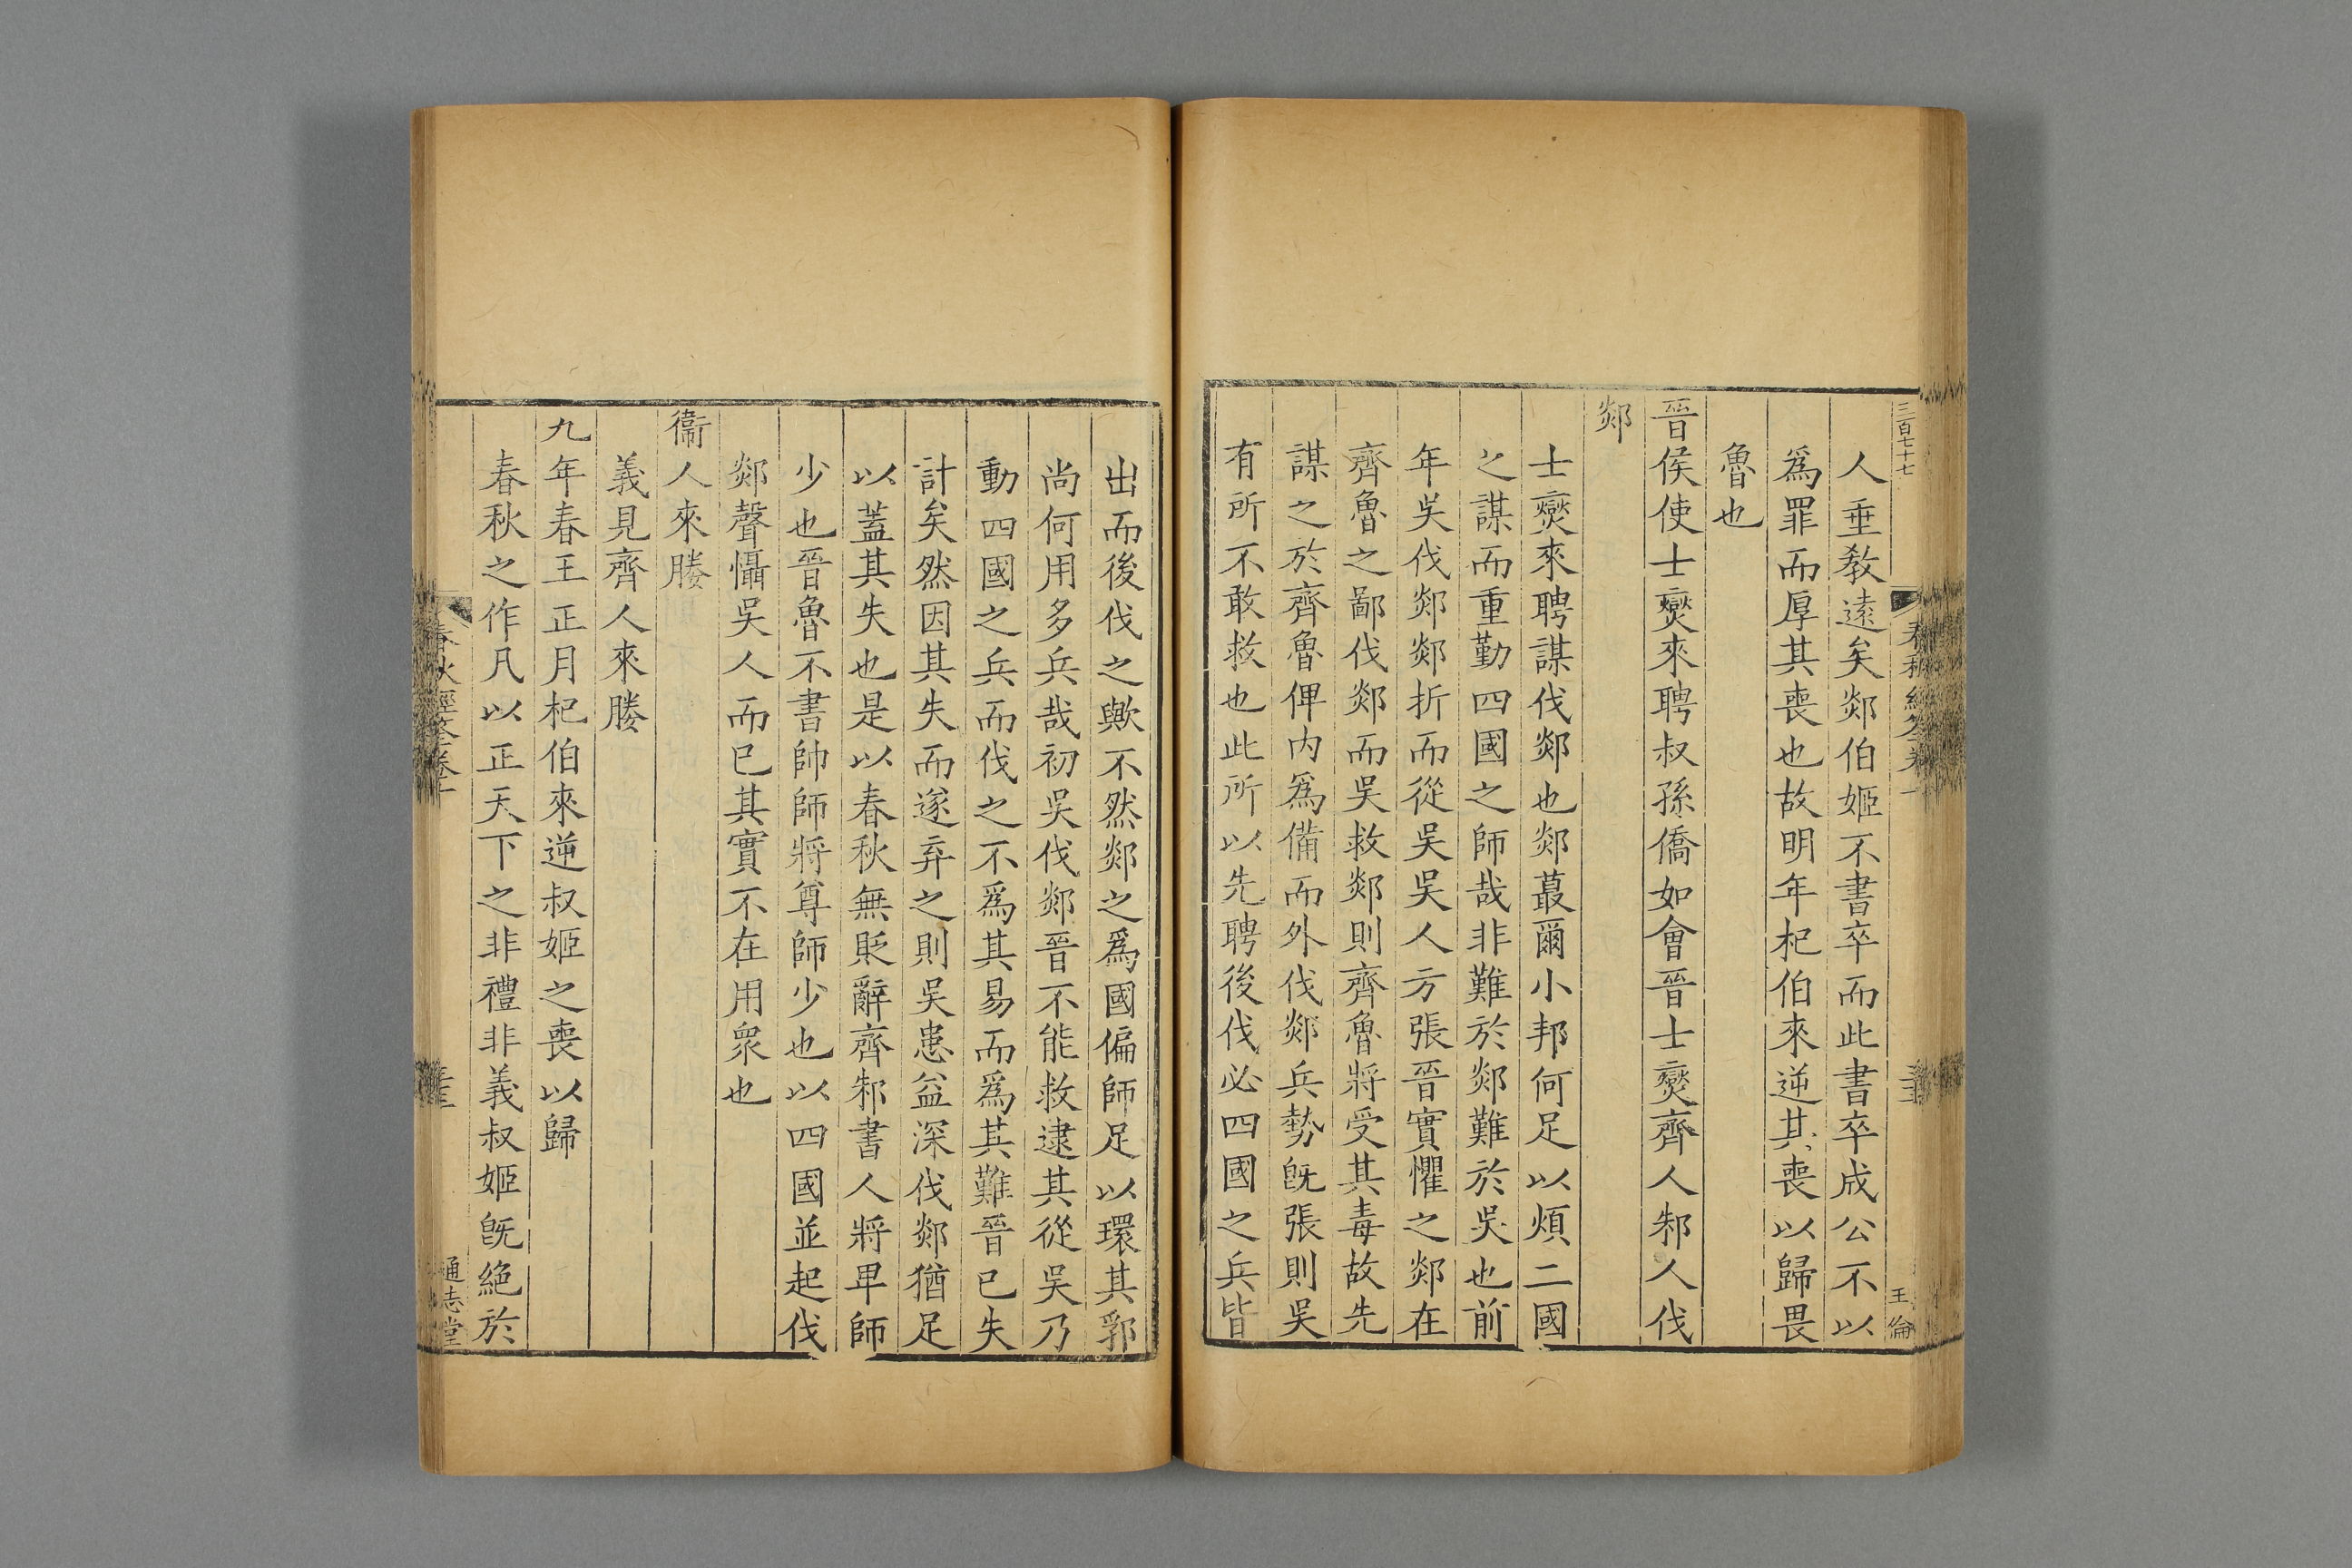 三百七十七
王倫
人垂敎遠矣郯伯姬不書卒而此書卒成公不以
爲罪而厚其喪也故明年杞伯來逆其喪以歸畏
魯也
晉侯使士燮來聘叔孫僑如會晉士燮齊人邾人伐
郯
士燮來聘謀伐郯也郯蕞爾小邦何足以煩二國
之謀而重勤四國之師哉非難於郯難於吳也前
年吳伐郯郯折而從吳吳人方張晉實懼之郯在
齊魯之鄙伐郯而吳救郯則齊魯將受其毒故先
謀之於齊魯俾内爲備而外伐郯兵勢旣張則吳
有所不敢救也此所以先聘後伐必四國之兵皆
出而後伐之歟不然郯之爲國偏師足以環其郛
尚何用多兵哉初吳伐郯晉不能救逮其從吳乃
動四國之兵而伐之不爲其易而爲其難晉已失
計矣然因其失而遂弃之則吳患益深伐郯猶足
以蓋其失也是以春秋無貶辭齊邾書人將卑師
少也晉魯不書帥師將尊師少也以四國並起伐
郯聲懾吳人而已其實不在用衆也
衞人來媵
義見齊人來媵
九年春王正月杞伯來逆叔姬之喪以歸
春秋之作凡以正天下之非禮非義叔姬旣絶於
春秋經筌卷十
通志堂